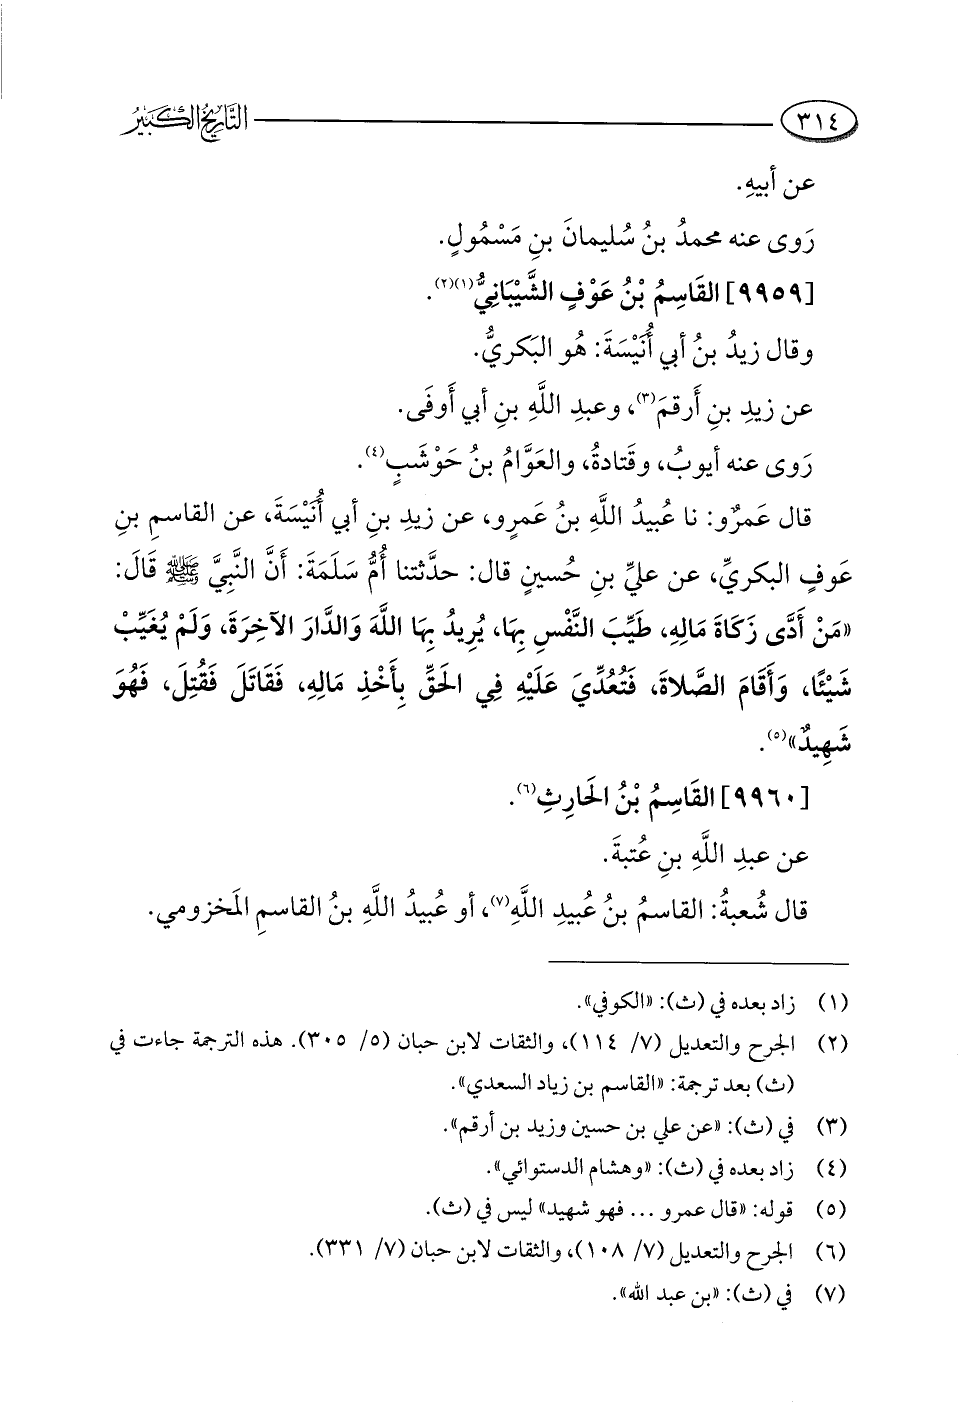 ٣١٤ التَّارِيخُ الكَبِيرُ
عن أبيهِ.
رَوى عنه محمدُ بنُ سُليمانَ بنِ مَسْمُولٍ.
[٩٩٥٩] القَاسِمُ بْنُ عَوْفٍ الشَّيْبَانِيُّ(١)(٢).
وقال زيدُ بنُ أبي أُنَيْسَةَ: هُو البَكريُّ.
عن زيدِ بنِ أَرقمَ(٣)، وعبدِ اللَّهِ بنِ أبي أَوفَى.
رَوى عنه أيوبُ، وقَتادةُ، والعَوَّامُ بنُ حَوْشَبٍ(٤).
قال عَمرٌو: نا عُبيدُ اللَّهِ بنُ عَمرٍو، عن زيدِ بنِ أبي أُنَيْسَةَ، عن القاسمِ بنِ
عَوفٍ البكريِّ، عن عليِّ بنِ حُسينٍ قال: حدَّثتنا أُمُّ سَلَمَةَ: أَنَّ النَّبِيَّ ﷺ قَالَ:
«مَنْ أَدَّى زَكَاةَ مَالِهِ، طَيِّبَ النَّفْسِ بِهَا، يُرِيدُ بِهَا اللَّهَ وَالدَّارَ الآخِرَةَ، وَلَمْ يُغَيِّبْ
شَيْئًا، وَأَقَامَ الصَّلاةَ، فَتُعُدِّيَ عَلَيْهِ فِي الحَقِّ بِأَخْذِ مَالِهِ، فَقَاتَلَ فَقُتِلَ، فَهُوَ
شَهِيدٌ»(٥).
[٩٩٦٠] القَاسِمُ بْنُ الحَارِثِ(٦).
عن عبدِ اللَّهِ بنِ عُتبةَ.
قال شُعبةُ: القاسمُ بنُ عُبيدِ اللَّهِ(٧)، أو عُبيدُ اللَّهِ بنُ القاسمِ المَخزومي.
(١) زاد بعده في (ث): «الكوفي».
(٢) الجرح والتعديل (٧/ ١١٤)، والثقات لابن حبان (٥/ ٣٠٥). هذه الترجمة جاءت في
(ث) بعد ترجمة: «القاسم بن زياد السعدي».
(٣) في (ث): «عن علي بن حسين وزيد بن أرقم».
(٤) زاد بعده في (ث): «وهشام الدستوائي».
(٥) قوله: «قال عمرو ... فهو شهيد» ليس في (ث).
(٦) الجرح والتعديل (٧/ ١٠٨)، والثقات لابن حبان (٧/ ٣٣١).
(٧) في (ث): «بن عبد الله».